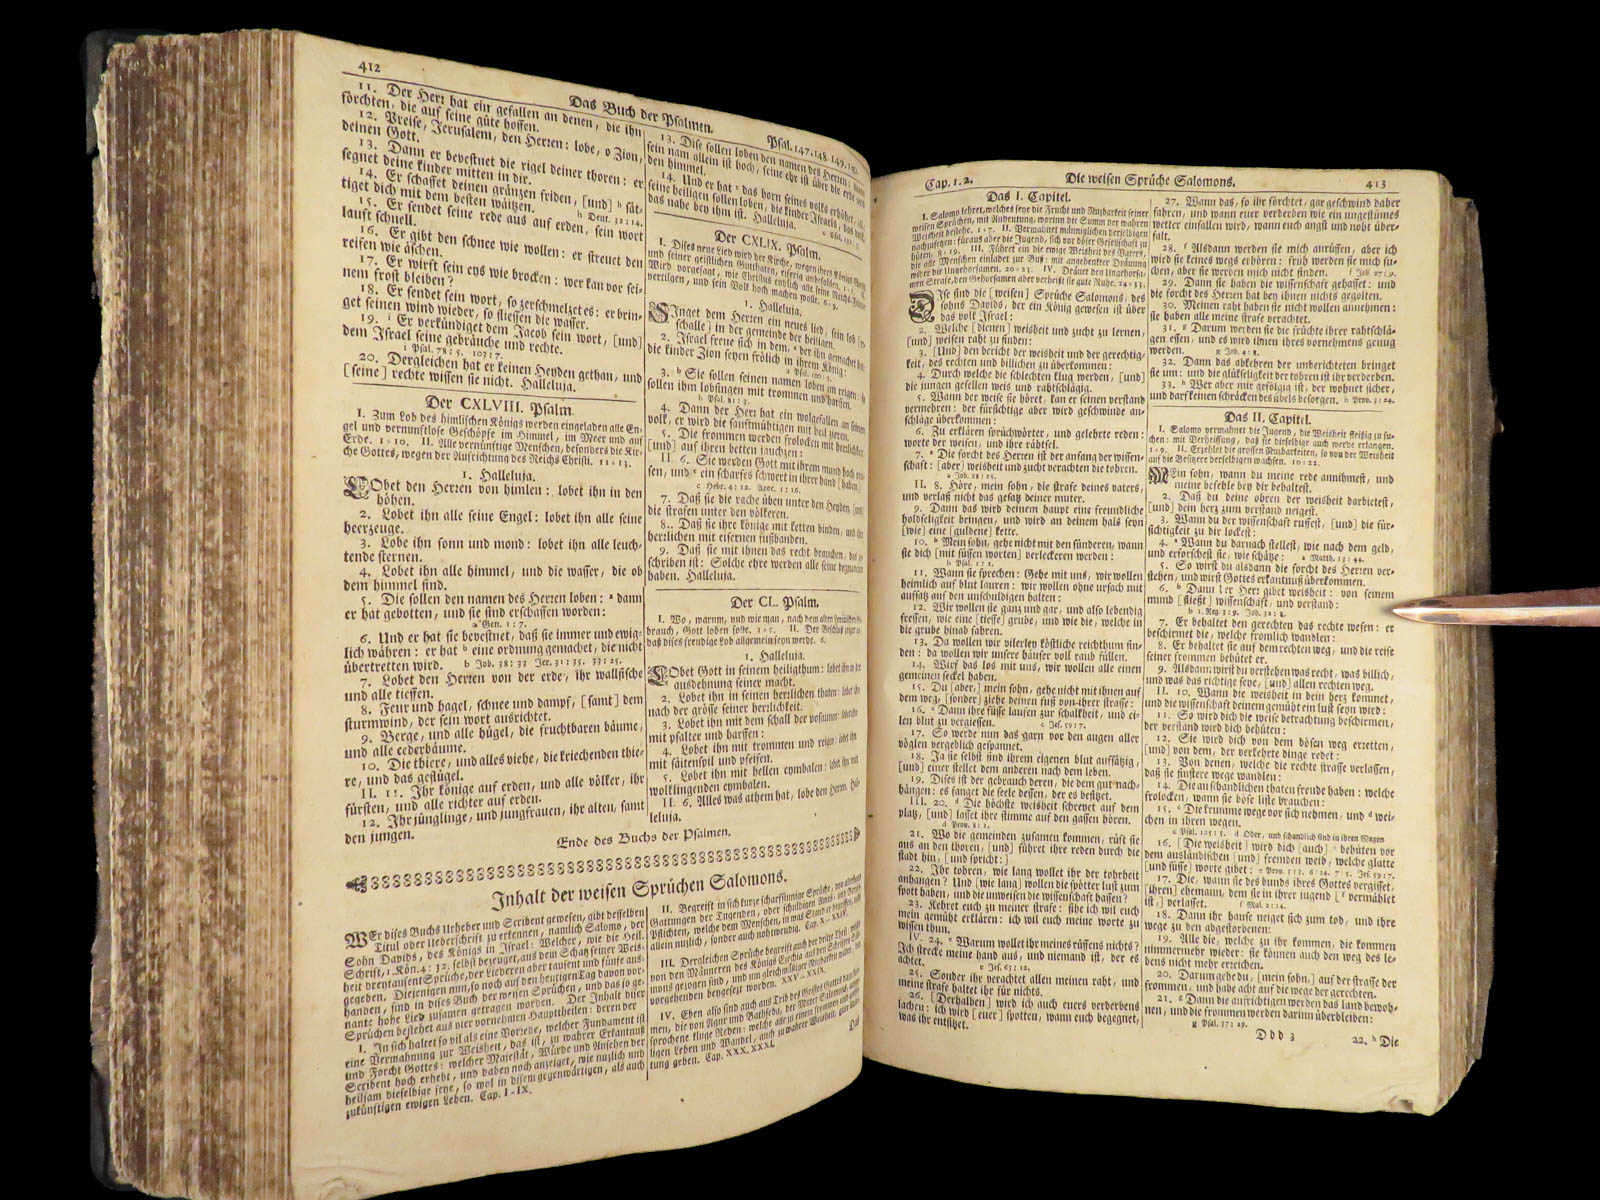 412
Das Buch der Psalmen.
Psal. 147. 148. 149. 150.
11. Der Herr hat ein gefallen an denen, die ihn
förchten, die auf seine güte hoffen.
12. Preise, Jerusalem, den Herren: lobe, o Zion,
deinen Gott.
13. Dann er bevestnet die rigel deiner thoren: er
segnet deine kinder mitten in dir.
14. Er schaffet deinen gränzen friden, [und] h sät-
tiget dich mit dem besten wäitzen.
h Deut. 32: 14.
15. Er sendet seine rede aus auf erden, sein wort
lauft schnell.
16. Er gibt den schnee wie wollen: er streuet den
reifen wie äschen.
17. Er wirft sein eys wie brocken: wer kan vor sei-
nem frost bleiben?
18. Er sendet sein wort, so zerschmelzet es: er brin-
get seinen wind wieder, so fliessen die wasser.
19. i Er verkündiget dem Jacob sein wort, [und]
dem Israel seine gebräuche und rechte.
i Psal. 78: 5. 103: 7.
20. Dergleichen hat er keinen Heyden gethan, und
[seine] rechte wissen sie nicht. Halleluja.
Der CXLVIII. Psalm.
I. Zum Lob des himlischen Königs werden eingeladen alle En-
gel und vernunftlose Geschöpfe im Himmel, im Meer und auf
Erde. 1-10. II. Alle vernünftige Menschen, besonders die Kir-
che Gottes, wegen der Aufrichtung des Reichs Christi. 11-13.
1. Halleluja.
LObet den Herren von himlen: lobet ihn in den
höhen.
2. Lobet ihn alle seine Engel: lobet ihn alle seine
heerzeuge.
3. Lobe ihn sonn und mond: lobet ihn alle leuch-
tende sternen.
4. Lobet ihn alle himmel, und die wasser, die ob
dem himmel sind.
5. Die sollen den namen des Herren loben: a dann
er hat gebotten, und sie sind erschaffen worden:
a Gen. 1: 7.
6. Und er hat sie bevestnet, daß sie immer und ewig-
lich währen: er hat b eine ordnung gemachet, die nicht
übertretten wird.
b Job. 38: 33 Jer. 31: 35. 33: 25.
7. Lobet den Herren von der erde, ihr wallfische
und alle tieffen.
8. Feur und hagel, schnee und dampf, [samt] dem
sturmwind, der sein wort ausrichtet.
9. Berge, und alle hügel, die fruchtbaren bäume,
und alle cederbäume.
10. Die thiere, und alles viehe, die kriechenden thie-
re, und das geflügel.
II. 11. Ihr könige auf erden, und alle völker, ihr
fürsten, und alle richter auf erden.
12. Ihr jünglinge, und jungfrauen, ihr alten, samt
den jungen.
13. Dise sollen loben den namen des Herren: dann
sein nam allein ist hoch, seine ehr ist über die erde und
den himmel.
14. Und er hat c das horn seines volks erhöhet, alle
seine heiligen sollen loben, die kinder Israels, das volk
das nahe bey ihm ist. Halleluja.
Der CXLIX. Psalm.
1. Halleluja.
SInget dem Herren ein neues lied, sein lob
schalle] in der gemeinde der heiligen.
2. Israel freue sich in dem, a der ihn gemachet hat,
die kinder Zion seyen frölich in ihrem König:
3. b Sie sollen seinen namen loben im reigen: sie
sollen ihm lobsingen mit trommen und harffen.
b Psal. 81: 3.
4. Dann der Herr hat ein wolgefallen an seinem
volk, er wird die sanftmüthigen mit heil zieren.
5. Die frommen werden frolocken mit herrlichkeit,
[und] auf ihren betten jauchzen:
II. 6. Sie werden Gott mit ihrem mund hoch prei-
sen, und c ein scharfes schwert in ihrer hand [haben]
c Hebr. 4: 12. Apoc. 1: 16.
7. Daß sie die rache üben unter den Heyden, [und]
die strafen unter den völkeren.
8. Daß sie ihre könige mit ketten binden, und ihre
herrlichen mit eisernen fußbanden.
9. Daß sie mit ihnen das recht brauchen, das ge-
schriben ist: Solche ehre werden alle seine begnadeten
haben. Halleluja.
Der CL. Psalm.
I. Wo, warum, und wie man, nach dem alten
brauch, Gott loben solle. 1-5. II. Der Beschluß zeiget an
daß dises freudige Lob allgemein seyn werde. 6.
1. Halleluja.
LObet Gott in seinem heiligthum: lobet ihn in der
ausdehnung seiner macht.
2. Lobet ihn in seinen herrlichen thaten: lobet ihn
nach der grösse seiner herrlichkeit.
3. Lobet ihn mit dem schall der posaunen: lobet ihn
mit psalter und harffen:
4. Lobet ihn mit trommen und reigen: lobet ihn
mit säitenspil und pfeifen.
5. Lobet ihn mit hellen cymbalen: lobet ihn mit
wolklingenden cymbalen.
II. 6. Alles was athem hat, lobe den Herren. Hal-
leluja.
Ende des Buchs der Psalmen.
Inhalt der weisen Sprüchen Salomons.
WEr dises Buchs Urheber und Scribent gewesen, gibt desselben
Titul oder Ueberschrift zu erkennen, namlich Salomo, der
Sohn Davids, des Königs in Israel: Welcher, wie die Heil.
Schrift, 1. Kön. 4: 32. selbst bezeuget, aus dem Schatz seiner Weis-
heit dreytausent Sprüche, der Liederen aber tausent und fünfe aus-
gegeben. Diejenigen nun, so noch auf den heutigen Tag davon vor-
handen, sind in dises Buch der weisen Sprüchen, und das so ge-
nante hohe Lied zusamen getragen worden. Der Inhalt diser
Sprüchen bestehet aus vier vornehmen Hauptheilen: deren der
I. In sich haltet so vil als eine Vorrede, welcher Fundament ist
eine Vermahnung zur Weisheit, das ist, zu wahrer Erkantnuß
und Forcht Gottes: welcher Majestät, Würde und Ansehen der
Scribent hoch erhebt, und dabey noch anzeiget, wie nuzlich und
heilsam dieselbige seye, so wol in disem gegenwärtigen, als auch
zukünftigen ewigen Leben. Cap. I-IX.
II. Begreift in sich kurze scharfsinnige Sprüche, von allerhand
Gattungen der Tugenden, oder schuldigen
Pflichten, welche dem Menschen, in was Stand er
allein nuzlich, sonder auch nohtwendig. Cap. X-XXIV.
III. Dergleichen Sprüche begreift auch der dritte Theil, welche
von den Männeren des Königs Ezechia aus den Schriften Salo-
mons gezogen sind, und um gleichmäßiger Nuzbarkeit willen, den
vorgehenden beygesezt worden. XXV-XXIX.
IV. Eben also sind auch aus Trib des Geistes Gottes
men, die von Agur und Bathseba, der Muter Salomons,
sprochene kluge Reden: welche alle zu einem frommen und
ligen Leben und Wandel, auch zu wahrer Weisheit,
tung geben. Cap. XXX. XXXI.
Das
Cap. 1. 2.
Die weisen Sprüche Salomons.
413
Das I. Capitel.
I. Salomo lehret, welches seye die Frucht und Nuzbarkeit seiner
weisen Sprüchen, mit Andeutung, worinn die Summ der wahren
Weisheit bestehe. 1-7. II. Vermahnet männiglichen derselbigen
nachzusetzen: füraus aber die Jugend, sich vor böser Gesellschaft zu
hüten. 8-19. III. Führet ein die ewige Weisheit des Vaters,
die alle Menschen einladet zur Buß: mit angehenkter Dräuung
wider die Ungehorsamen. 20-23. IV. Dräuet den Ungehorsa-
men Strafe, den Gehorsamen aber verheißt sie gute Ruhe. 24-33.
DIse sind die [weisen] Sprüche Salomons, des
sohns Davids, der ein König gewesen ist über
das volk Israel:
2. Welche [dienen] weisheit und zucht zu lernen,
[und] weisen raht zu finden:
3. [Und] den bericht der weisheit und der gerechtig-
keit, des rechten und billichen zu überkommen:
4. Durch welche die schlechten klug werden, [und]
die jungen gesellen weis und rahtschlägig.
5. Wann der weise sie höret, kan er seinen verstand
vermehren: der fürsichtige aber wird geschwinde an-
schläge überkommen:
6. Zu erklären sprüchwörter, und gelehrte reden:
worte der weisen, und ihre rähtsel.
7. a Die forcht des Herren ist der anfang der wissen-
schaft: [aber] weisheit und zucht verachten die tohren.
a Job. 28: 28.
II. 8. Höre, mein sohn, die strafe deines vaters,
und verlaß nicht das gesatz deiner muter.
9. Dann das wird deinem haupt eine freundliche
holdseligkeit bringen, und wird an deinem hals seyn
[wie] eine [guldene] kette.
10. b Mein sohn, gehe nicht mit den sünderen, wann
sie dich [mit süssen worten] verleckeren werden:
b Psal. 1: 1.
11. Wann sie sprechen: Gehe mit uns, wir wollen
heimlich auf blut lauren: wir wollen ohne ursach mit
aufsatz auf den unschuldigen halten:
12. Wir wollen sie ganz und gar, und also lebendig
fressen, wie eine [tieffe] grube, und wie die, welche in
die grube hinab fahren.
13. Da wollen wir vilerley köstliche reichthum fin-
den: da wollen wir unsere häuser voll raub füllen.
14. Wirf das los mit uns, wir wollen alle einen
gemeinen seckel haben.
15. Du [aber,] mein sohn, gehe nicht mit ihnen auf
dem weg, [sonder] ziehe deinen fuß von ihrer strasse:
16. c Dann ihre füsse laufen zur schalkheit, und ei-
len blut zu vergiessen.
c Jes. 59: 7.
17. So werde man das garn vor den augen aller
vöglen vergeblich gespannet.
18. Ja sie selbst sind ihrem eigenen blut aufsätzig,
[und] einer stellet dem anderen nach dem leben.
19. Dises ist der gebrauch deren, die dem gut nach-
hängen: es fanget die seele dessen, der es besitzet.
III. 20. d Die höchste weisheit schreyet auf dem
platz, [und] lasset ihre stimme auf den gassen hören.
d Prov. 8: 1.
21. Wo die gemeinden zusamen kommen, rüft sie
aus an den thoren, [und] führet ihre reden durch die
stadt hin, [und spricht:]
22. Ihr tohren, wie lang wollet ihr der tohrheit
anhangen? Und [wie lang] wollen die spötter lust zum
spott haben, und die unweisen die wissenschaft hassen?
23. Kehret euch zu meiner strafe: sihe ich wil euch
mein gemüht erklären: ich wil euch meine worte zu
wissen thun.
IV. 24. e Warum wollet ihr meines rüffens nichts?
Ich strecke meine hand aus, und niemand ist, der es
achtet.
e Jes. 65: 12.
25. Sonder ihr verachtet allen meinen raht, und
meine strafe haltet ihr für nichts.
26. [Derhalben] wird ich auch euers verderbens
lachen: ich wird [euer] spotten, wann euch begegnet,
was ihr entsitzet.
27. Wann das, so ihr förchtet, gar geschwind daher
fahren, und wann euer verderben wie ein ungestümes
wetter einfallen wird, wann euch angst und noht über-
falt.
28. f Alsdann werden sie mich anrüffen, aber ich
wird sie keines wegs erhören: früh werden sie mich su-
chen, aber sie werden mich nicht finden.
f Job. 27: 9.
29. Dann sie haben die wissenschaft gehasset: und
die forcht des Herren hat bey ihnen nichts gegolten.
30. Meinen raht haben sie nicht wollen annehmen:
sie haben alle meine strafe verachtet.
31. g Darum werden sie die früchte ihrer rahtschlä-
gen essen, und es wird ihnen ihres vornehmens genug
werden.
g Job. 4: 8.
32. Dann das abkehren der unberichteten bringet
sie um: und die glükseligkeit der tohren ist ihr verderben.
33. h Wer aber mir gefölgig ist, der wohnet sicher,
und darf keinen schräcken des übels besorgen. h Prov. 3: 24.
Das II. Capitel.
I. Salomo vermahnet die Jugend, die Weisheit fleißig zu su-
chen: mit Verheissung, daß sie dieselbige auch werde erlangen.
1-9. II. Erzehlet die grossen Nuzbarkeiten, so von der Weisheit
auf die Besitzere derselbigen wachsen. 10-22.
MEin sohn, wann du meine rede annihmest, und
meine befehle bey dir behaltest.
2. Daß du deine ohren der weisheit darbietest,
[und] dein herz zum verstand neigest.
3. Wann du der wissenschaft ruffest, [und] die für-
sichtigkeit zu dir lockest:
4. a Wann du darnach stellest, wie nach dem geld,
und erforschest sie, wie schätze:
a Matth. 13: 44.
5. So wirst du alsdann die forcht des Herren ver-
stehen, und wirst Gottes erkantnuß überkommen.
6. b Dann der Herr gibet weisheit: von seinem
mund [fließt] wissenschaft, und verstand:
b 1. Reg. 3: 9. Job. 32: 8.
7. Er behaltet den gerechten das rechte wesen: er
beschirmet die, welche fromlich wandlen:
8. Er behaltet sie auf dem rechten weg, und die reise
seiner frommen behütet er.
9. Alsdann wirst du verstehen was recht, was billich,
und was das richtige seye, [und] allen rechten weg.
II. 10. Wann die weisheit in dein herz kommet,
und die wissenschaft deinem gemüht ein lust seyn wird:
11. So wird dich die weise betrachtung beschirmen,
der verstand wird dich behüten:
12. Sie wird dich von dem bösen weg erretten,
[und] von dem, der verkehrte dinge redet:
13. Von denen, welche die rechte strasse verlassen,
daß sie finstere wege wandlen:
14. Die an schandlichen thaten freude haben: welche
frolocken, wann sie böse liste brauchen:
15. c Die krumme wege vor sich nehmen, und d wei-
chen in ihren wegen.
c Psal. 125: 5. d Oder, und schandlich sind in ihren Wegen
16. [Die weisheit] wird dich [auch] e behüten vor
dem ausländischen [und] fremden weib, welche glatte
[und süsse] worte gibet:
e Prov. 5: 3. 6: 24. 7: 5. Jes. 59: 7.
17. Die, wann sie des bunds ihres Gottes vergisset,
[ihren] ehemann, dem sie in ihrer jugend [f vermählet
ist,] verlasset.
f Mal. 2: 14.
18. Dann ihr hause neiget sich zum tod, und ihre
wege zu den abgestorbenen:
19. Alle die, welche zu ihr kommen, die kommen
nimmermehr wieder: sie können auch den weg des le-
bens nicht mehr erreichen.
20. Darum gehe du, [mein sohn,] auf der strasse der
frommen, und habe acht auf die wege der gerechten.
21. g Dann die aufrichtigen werden das land bewoh-
nen, und die frommen werden darinn überbleiben:
g Psal. 37: 29.
Ddd 3
22. h Die